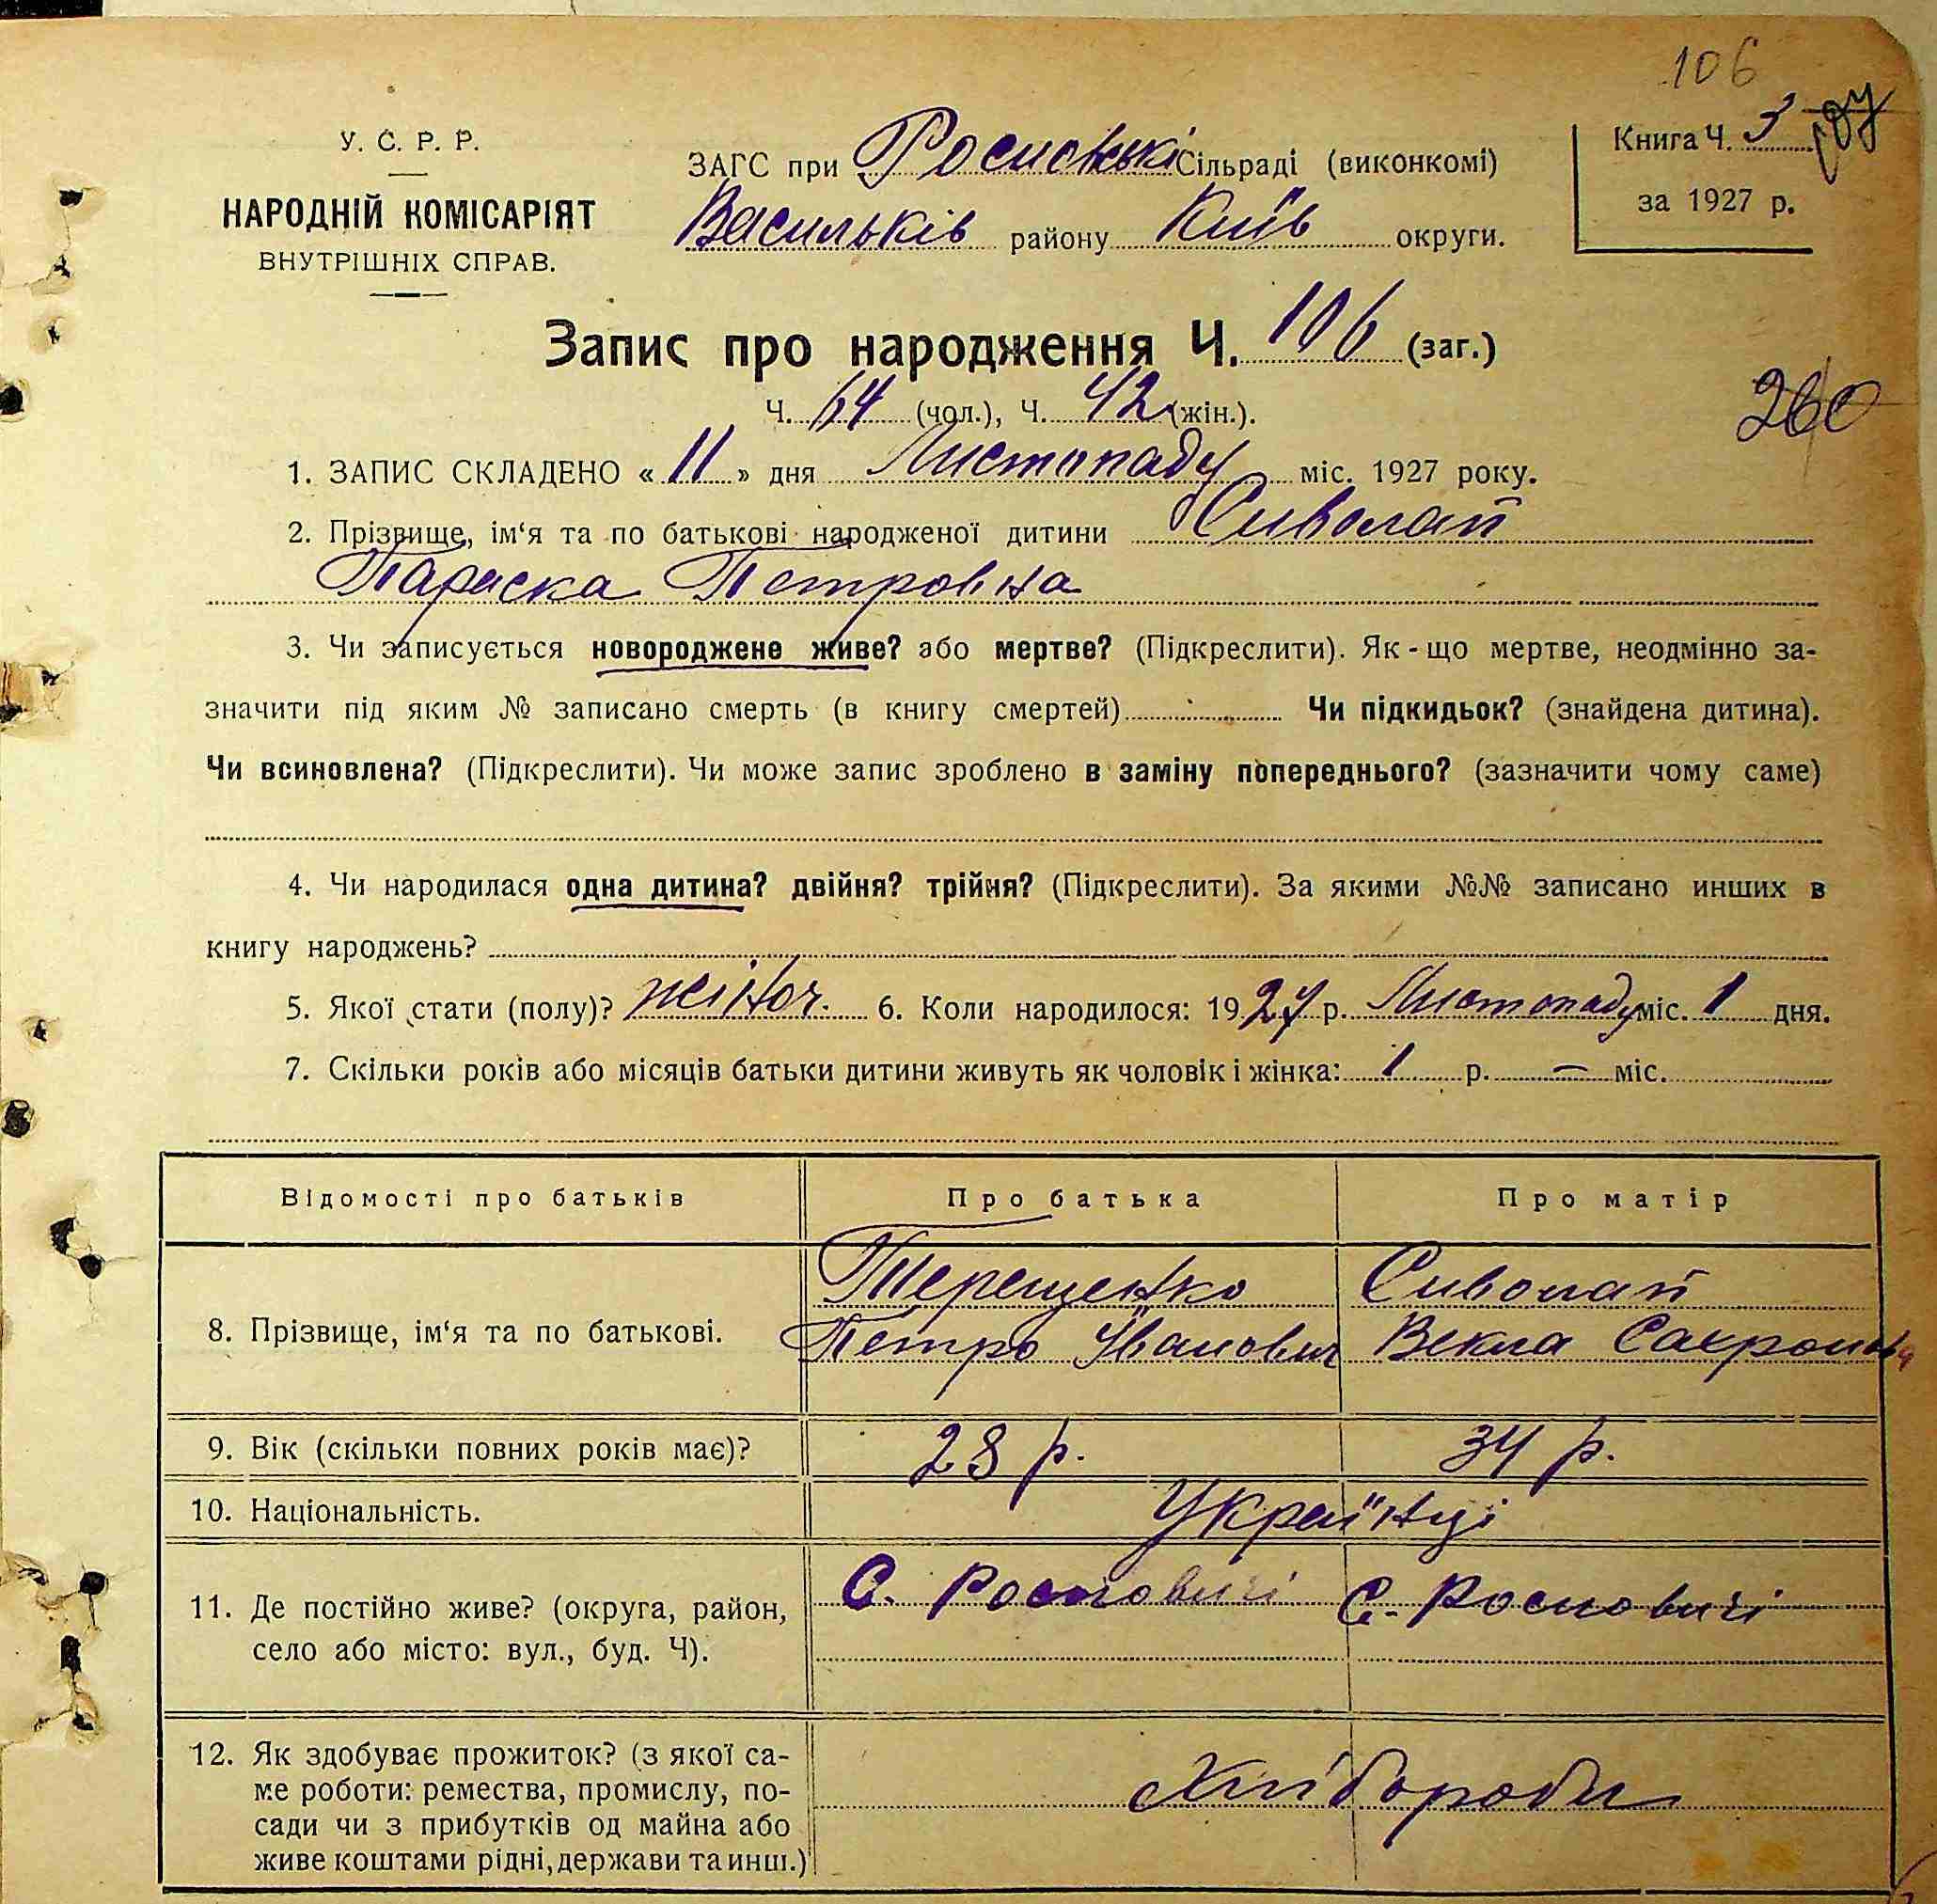 106
У. С. Р. Р.
НАРОДНІЙ КОМІСАРІЯТ
ВНУТРІШНІХ СПРАВ.
ЗАГС при Росиові Сільраді (виконкомі)
Васильків району Київ округи.
Книга Ч. 3 107
за 1927 р.
Запис про народження Ч. 106 (заг.)
Ч. 64 (чол.), Ч. 42 (жін.).
260
1. ЗАПИС СКЛАДЕНО « 11 » дня Листопаду міс. 1927 року.
2. Прізвище, ім'я та по батькові народженої дитини Сиволап
Параска Петровна
3. Чи записується новороджене живе? або мертве? (Підкреслити). Як-що мертве, неодмінно за-
значити під яким № записано смерть (в книгу смертей) Чи підкидьок? (знайдена дитина).
Чи всиновлена? (Підкреслити). Чи може запис зроблено в заміну попереднього? (зазначити чому саме)
4. Чи народилася одна дитина? двійня? трійня? (Підкреслити). За якими №№ записано инших в
книгу народжень?
5. Якої стати (полу)? жіноч. 6. Коли народилося: 1927 р. Листопаду міс. 1 дня.
7. Скільки років або місяців батьки дитини живуть як чоловік і жінка: 1 р. — міс.
Відомості про батьків Про батька Про матір
8. Прізвище, ім'я та по батькові.
Терещенко Сиволап
Петро Іванович Векла Сахронова
9. Вік (скільки повних років має)? 28 р. 34 р.
10. Національність. Українці
11. Де постійно живе? (округа, район,
село або місто: вул., буд. Ч).
С. Росиовичі С. Росиовичі
12. Як здобуває прожиток? (з якої са-
ме роботи: ремества, промислу, по-
сади чи з прибутків од майна або
живе коштами рідні, держави та инш.)
Хліборобы